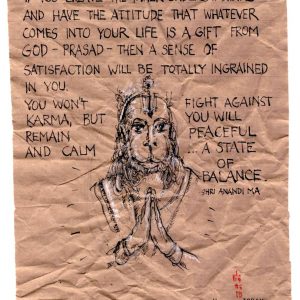 YOU CREATE THE
AND HAVE THE ATTITUDE THAT WHATEVER
COMES INTO YOUR LIFE IS A GIFT FROM
GOD - PRASAD - THEN A SENSE OF
SATISFACTION WILL BE TOTALLY INGRAINED
IN YOU.
YOU WON'T FIGHT AGAINST
KARMA, BUT YOU WILL
REMAIN PEACEFUL
AND CALM ... A STATE
OF
BALANCE.
SHRI ANANDI MA